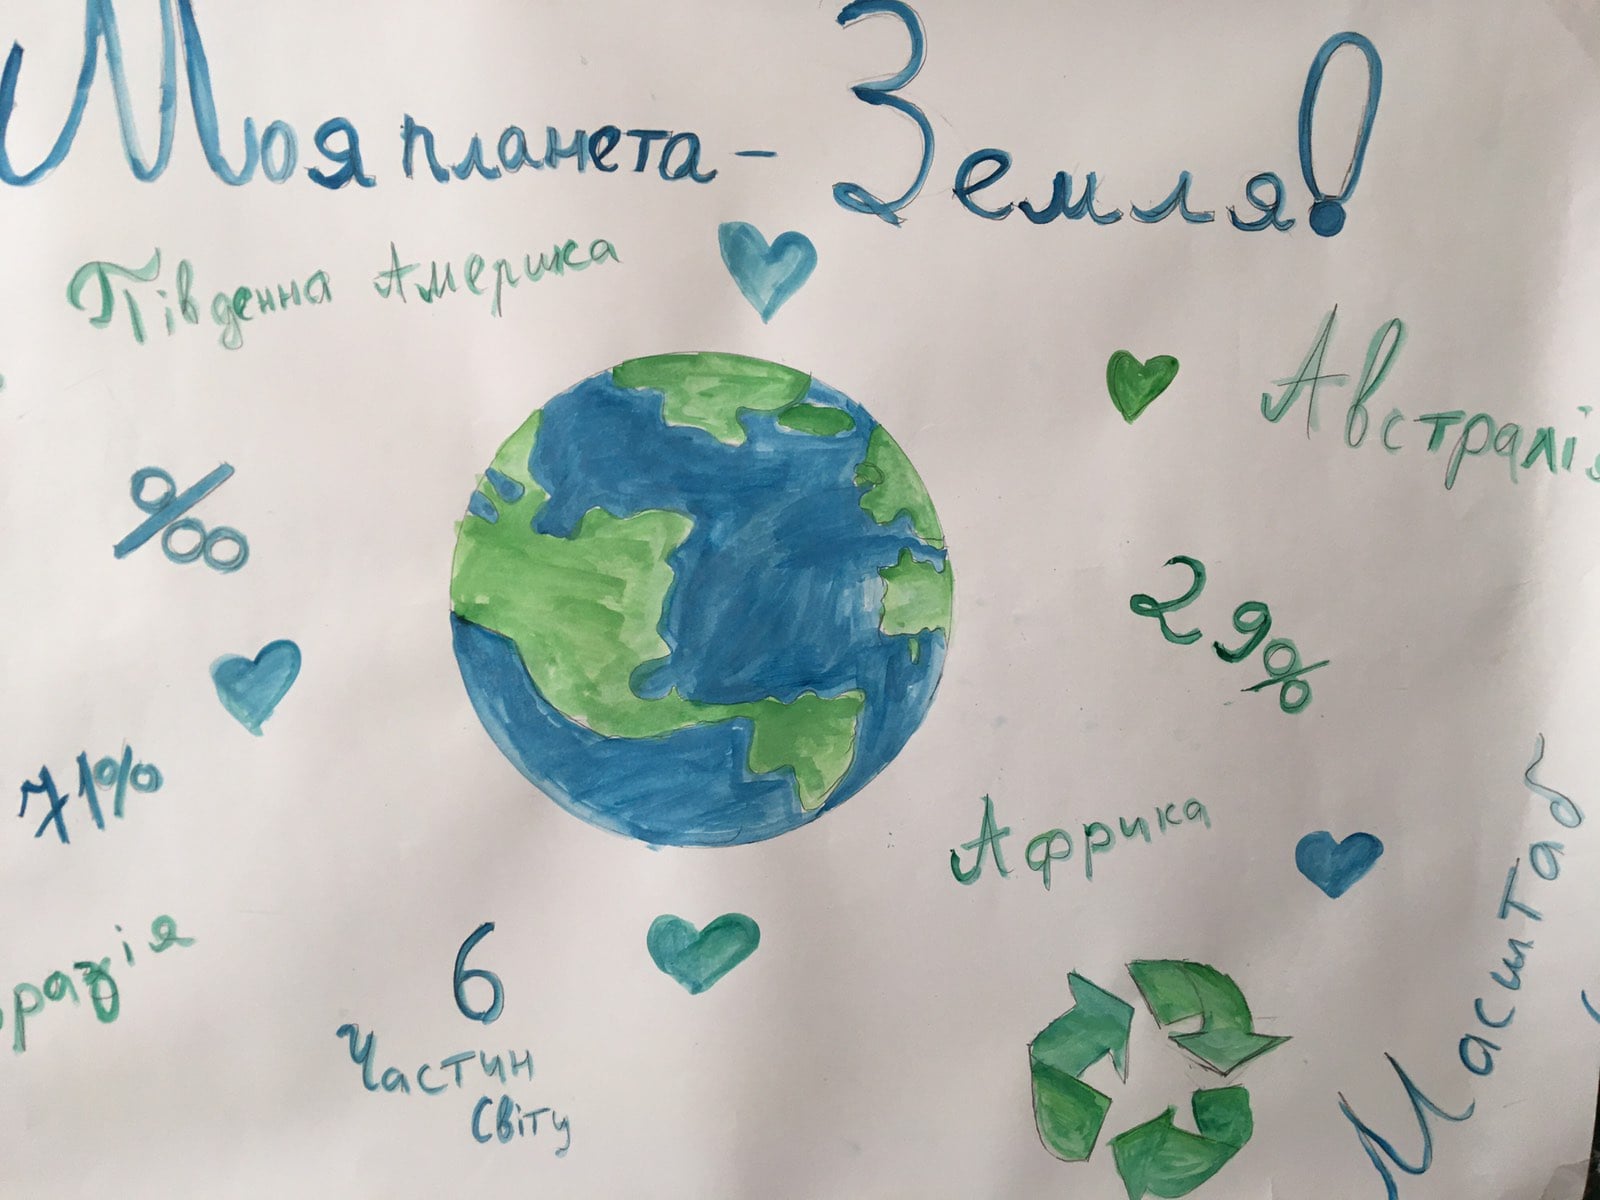 Моя планета - Земля!
Південна Америка
Австралія
‰
29%
71%
Африка
Масштаб
разія
6
Частин
світу